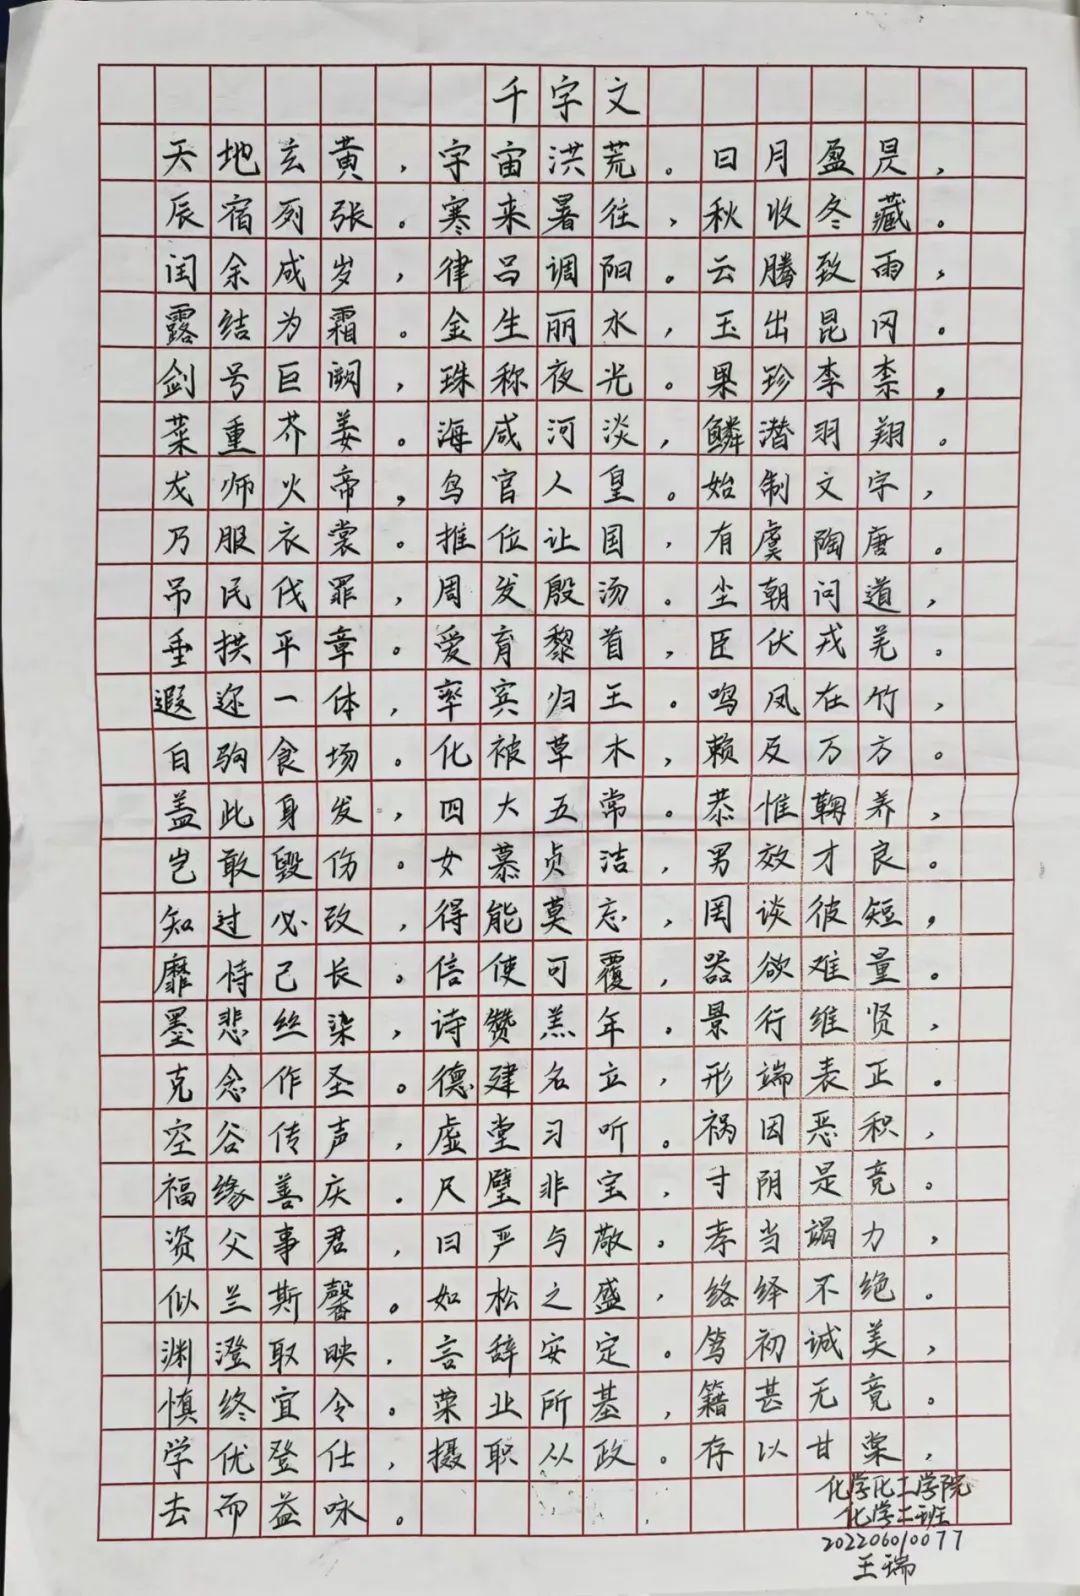 千字文
天地玄黄，宇宙洪荒。日月盈昃，
辰宿列张。寒来暑往，秋收冬藏。
闰余成岁，律吕调阳。云腾致雨，
露结为霜。金生丽水，玉出昆冈。
剑号巨阙，珠称夜光。果珍李柰，
菜重芥姜。海咸河淡，鳞潜羽翔。
龙师火帝，鸟官人皇。始制文字，
乃服衣裳。推位让国，有虞陶唐。
吊民伐罪，周发殷汤。坐朝问道，
垂拱平章。爱育黎首，臣伏戎羌。
遐迩一体，率宾归王。鸣凤在竹，
白驹食场。化被草木，赖及万方。
盖此身发，四大五常。恭惟鞠养，
岂敢毁伤。女慕贞洁，男效才良。
知过必改，得能莫忘，罔谈彼短，
靡恃己长。信使可覆，器欲难量。
墨悲丝染，诗赞羔羊。景行维贤，
克念作圣。德建名立，形端表正。
空谷传声，虚堂习听。祸因恶积，
福缘善庆。尺璧非宝，寸阴是竞。
资父事君，曰严与敬。孝当竭力，
似兰斯馨。如松之盛，络绎不绝。
渊澄取映，言辞安定。笃初诚美，
慎终宜令。荣业所基，籍甚无竟。
学优登仕，摄职从政。存以甘棠，
去而益咏。
化学化工学院
化学二班
202206010077
王瑞